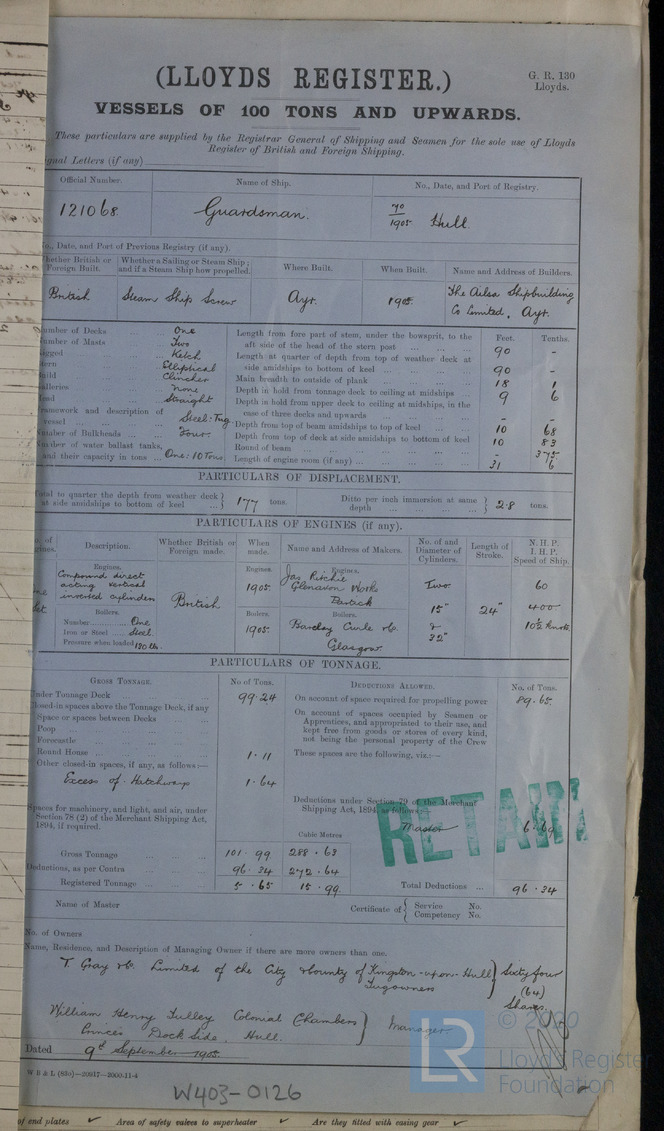 (LLOYDS REGISTER.)
G. R. 130
Lloyds.
VESSELS OF 100 TONS AND UPWARDS.
These particulars are supplied by the Registrar General of Shipping and Seamen for the sole use of Lloyds
Register of British and Foreign Shipping.
gnal Letters (if any)
Official Number. Name of Ship. No., Date, and Port of Registry.
121068 Guardsman. 70/1905 Hull.
o., Date, and Port of Previous Registry (if any).
hether British or Foreign Built. Whether a Sailing or Steam Ship; and if a Steam Ship how propelled. Where Built. When Built. Name and Address of Builders.
British Steam Ship Screw Ayr. 1905. The Ailsa Shipbuilding
Co Limited, Ayr.
umber of Decks One
umber of Masts Two
igged Ketch
tern Elliptical
uild Clincher
alleries None
ead Straight
ramework and description of
vessel Steel: Tug
umber of Bulkheads Four.
umber of water ballast tanks,
and their capacity in tons One: 10 Tons
Feet. Tenths.
Length from fore part of stem, under the bowsprit, to the
aft side of the head of the stern post 90 -
Length at quarter of depth from top of weather deck at
side amidships to bottom of keel 90 -
Main breadth to outside of plank 18 1
Depth in hold from tonnage deck to ceiling at midships 9 6
Depth in hold from upper deck to ceiling at midships, in the
case of three decks and upwards - -
Depth from top of beam amidships to top of keel 10 68
Depth from top of deck at side amidships to bottom of keel 10 83
Round of beam - 375
Length of engine room (if any) 31 6
PARTICULARS OF DISPLACEMENT.
otal to quarter the depth from weather deck
at side amidships to bottom of keel 177 tons.
Ditto per inch immersion at same
depth 2.8 tons.
PARTICULARS OF ENGINES (if any).
o. of
gines. Description. Whether British or Foreign made. When made. Name and Address of Makers. No. of and Diameter of Cylinders. Length of Stroke. N. H. P. I. H. P. Speed of Ship.
Engines.
Compound direct
acting vertical
inverted cylinders
British
Engines.
1905
Engines.
Jas Ritchie
Glenavon Works
Partick
Two
15"
&
32"
24"
60
400
10½ knots
Boilers.
Number One
Iron or Steel Steel
Pressure when loaded 130 lbs.
Boilers.
1905.
Boilers.
Barclay Curle & Co.
Glasgow
PARTICULARS OF TONNAGE.
GROSS TONNAGE. No of Tons.
Under Tonnage Deck 99.24
losed-in spaces above the Tonnage Deck, if any
Space or spaces between Decks
Poop
Forecastle
Round House 1.11
Other closed-in spaces, if any, as follows:—
Excess of Hatchways 1.64
Spaces for machinery, and light, and air, under
Section 78 (2) of the Merchant Shipping Act,
1894, if required.
Cubic Metres
Gross Tonnage 101.99 288.63
Deductions, as per Contra 96.34 272.64
Registered Tonnage 5.65 15.99
DEDUCTIONS ALLOWED. No. of Tons.
On account of space required for propelling power 89.65
On account of spaces occupied by Seamen or
Apprentices, and appropriated to their use, and
kept free from goods or stores of every kind,
not being the personal property of the Crew
These spaces are the following, viz.:—
Deductions under Section 79 of the Merchant
Shipping Act, 1894, as follows:
Master 6.69
RETAIN
Total Deductions 96.34
Name of Master
Certificate of Service No.
Competency No.
No. of Owners
Name, Residence, and Description of Managing Owner if there are more owners than one.
T Gray & Co. Limited of the City & County of Kingston-upon-Hull
Tugowners
Sixty four
(64)
Shares.
William Henry Tulley Colonial Chambers
Princes Dock Side, Hull.
Manager
Dated 9th September 1905.
W B & L (83o)—20817—2000-11-4
W403-0126
LR
© 2020
Lloyd's Register
Foundation
of end plates Area of safety valves to superheater Are they fitted with easing gear